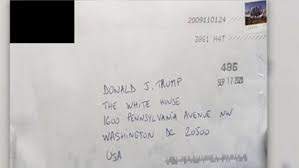 2009110124
3861 H4T
496
SEP 17 20
DONALD J. TRUMP
THE WHITE HOUSE
1600 PENNSYLVANIA AVENUE NW
WASHINGTON DC 20500
USA